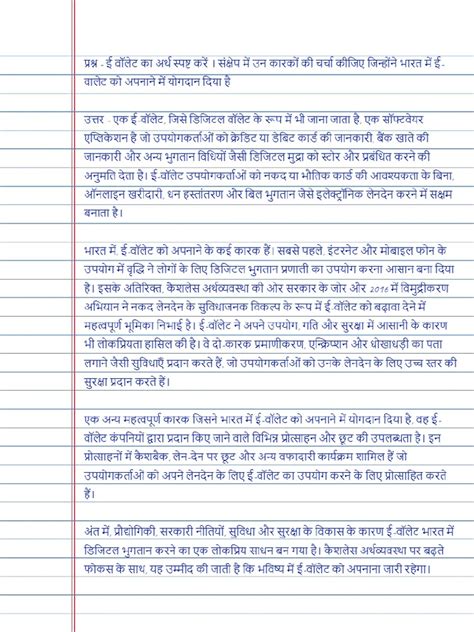 प्रश्न - ई वॉलेट का अर्थ स्पष्ट करें । संक्षेप में उन कारकों की चर्चा कीजिए जिन्होंने भारत में ई-
वालेट को अपनाने में योगदान दिया है
उत्तर - एक ई-वॉलेट, जिसे डिजिटल वॉलेट के रूप में भी जाना जाता है, एक सॉफ्टवेयर
एप्लिकेशन है जो उपयोगकर्ताओं को क्रेडिट या डेबिट कार्ड की जानकारी, बैंक खाते की
जानकारी और अन्य भुगतान विधियों जैसी डिजिटल मुद्रा को स्टोर और प्रबंधित करने की
अनुमति देता है। ई-वॉलेट उपयोगकर्ताओं को नकद या भौतिक कार्ड की आवश्यकता के बिना,
ऑनलाइन खरीदारी, धन हस्तांतरण और बिल भुगतान जैसे इलेक्ट्रॉनिक लेनदेन करने में सक्षम
बनाता है।
भारत में, ई-वॉलेट को अपनाने के कई कारक हैं। सबसे पहले, इंटरनेट और मोबाइल फोन के
उपयोग में वृद्धि ने लोगों के लिए डिजिटल भुगतान प्रणाली का उपयोग करना आसान बना दिया
है। इसके अतिरिक्त, कैशलेस अर्थव्यवस्था की ओर सरकार के जोर और 2016 में विमुद्रीकरण
अभियान ने नकद लेनदेन के सुविधाजनक विकल्प के रूप में ई-वॉलेट को बढ़ावा देने में
महत्वपूर्ण भूमिका निभाई है। ई-वॉलेट ने अपने उपयोग, गति और सुरक्षा में आसानी के कारण
भी लोकप्रियता हासिल की है। वे दो-कारक प्रमाणीकरण, एन्क्रिप्शन और धोखाधड़ी का पता
लगाने जैसी सुविधाएँ प्रदान करते हैं, जो उपयोगकर्ताओं को उनके लेनदेन के लिए उच्च स्तर की
सुरक्षा प्रदान करते हैं।
एक अन्य महत्वपूर्ण कारक जिसने भारत में ई-वॉलेट को अपनाने में योगदान दिया है, वह ई-
वॉलेट कंपनियों द्वारा प्रदान किए जाने वाले विभिन्न प्रोत्साहन और छूट की उपलब्धता है। इन
प्रोत्साहनों में कैशबैक, लेन-देन पर छूट और अन्य वफादारी कार्यक्रम शामिल हैं जो
उपयोगकर्ताओं को अपने लेनदेन के लिए ई-वॉलेट का उपयोग करने के लिए प्रोत्साहित करते
हैं।
अंत में, प्रौद्योगिकी, सरकारी नीतियों, सुविधा और सुरक्षा के विकास के कारण ई-वॉलेट भारत में
डिजिटल भुगतान करने का एक लोकप्रिय साधन बन गया है। कैशलेस अर्थव्यवस्था पर बढ़ते
फोकस के साथ, यह उम्मीद की जाती है कि भविष्य में ई-वॉलेट को अपनाना जारी रहेगा।